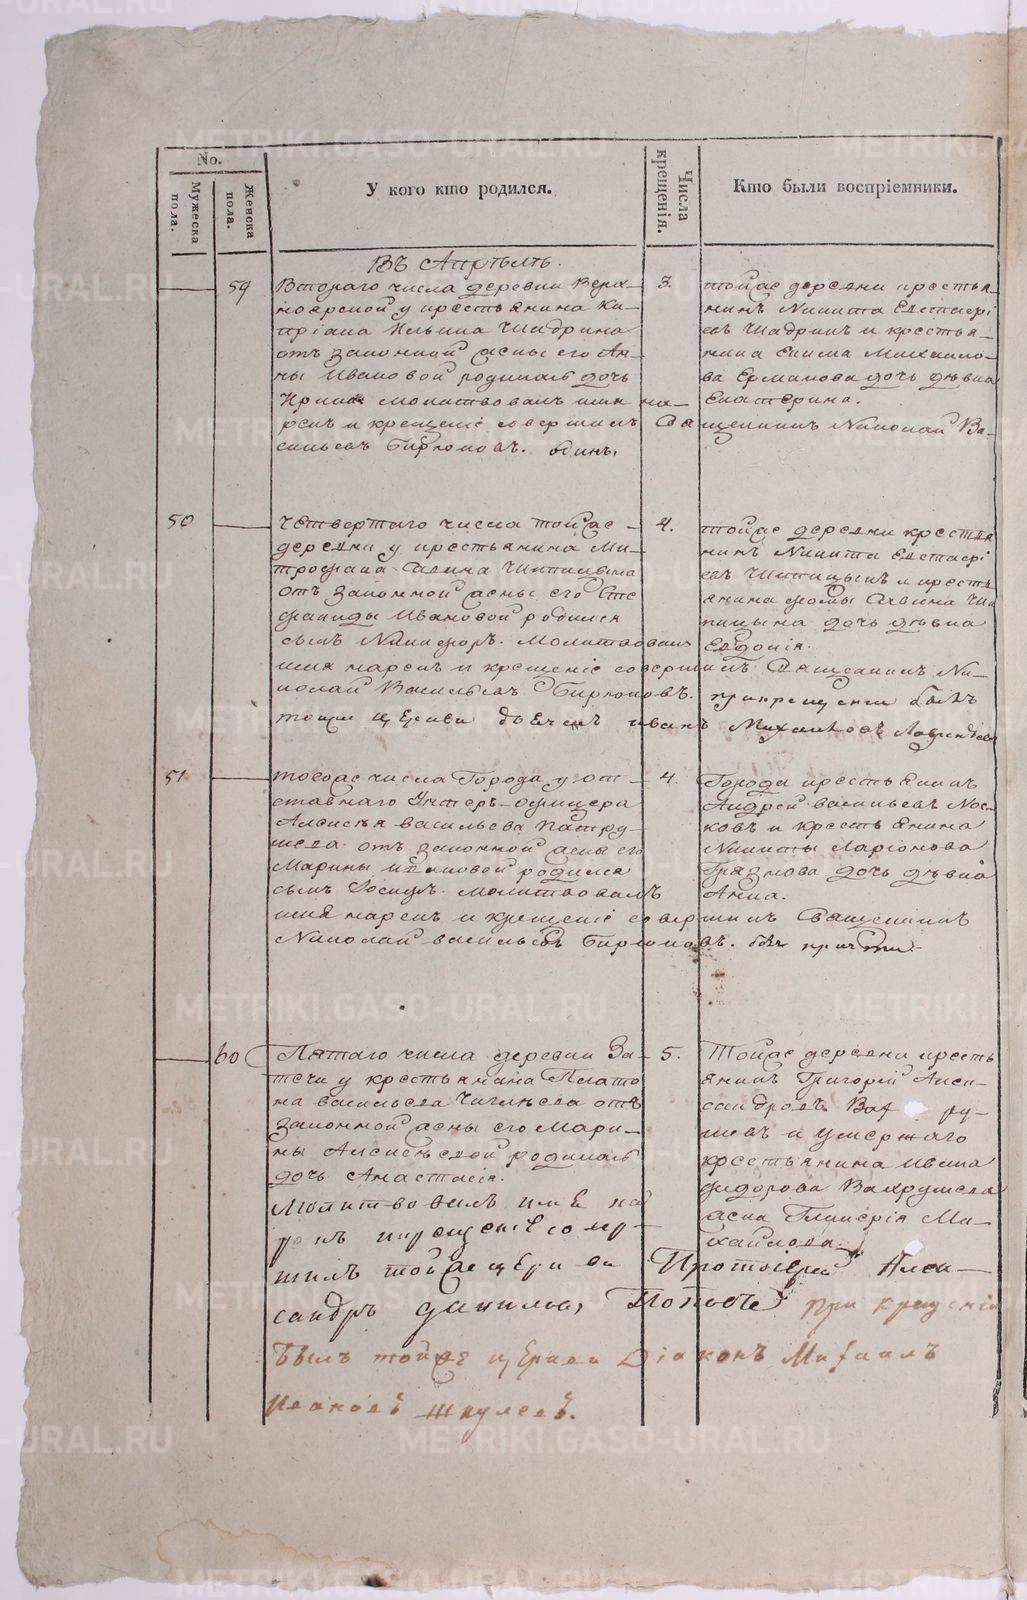 No.
Мужеска пола.
Женска пола.
У кого кто родился.
Числа крещенія.
Кто были воспріемники.
Въ Апрѣлѣ.
59
Втораго числа деревни Верх-
ноярской у крестьянина Ки-
пріана Ильина Шадрина
отъ законной жены его Ан-
ны Ивановой родилась дочь
Ирина молитвовалъ имя на-
рекъ и крещеніе совершилъ Священникъ Николай Ва-
сильевъ Бирюковъ. одинъ,
3.
тойже деревни крестья-
нинъ Никита Евстафі
евъ Шадринъ и крестья-
нина Екима Михайло-
ва Ермакова дочь дѣвка
Екатерина.
50
Четвертаго числа тойже
деревни у крестьянина Ми-
трофана Савина Шипицына
отъ законной жены его Сте
фаниды Ивановой родился
сынъ Никифоръ. Молитвовалъ
имя нарекъ и крещеніе совершилъ Священникъ Ни-
колай Васильевъ Бирюковъ. при крещеніи былъ
тойже церкви дьячекъ Иванъ Михайловъ
4.
тойже деревни крестья
нинъ Никита Евстафі
евъ Шипицынъ и кресть
янина Фомы Савина Ши
пицына дочь дѣвка
Евдокія.
51
тогоже числа Города у от-
ставнаго Унтеръ-офицера
Алексѣя Васильева Патру-
шева отъ законной жены его
Марины Ивановой родился
сынъ Іосифъ. молитвовалъ
имя нарекъ и крещеніе совершилъ Священникъ
Николай Васильевъ Бирюковъ. безъ причта
4.
Города крестьянинъ
Андрей Васильевъ Нос-
ковъ и крестьянина
Никиты Ларіонова
Грязнова дочь дѣвка
Анна.
60
Пятаго числа деревни За-
течи у крестьянина Плато
на Васильева Чиглѣева отъ
законной жены его Мари-
ны Алексѣевой родилась
дочь Анастасія.
Молитвовалъ имя на
рекъ и крещеніе совер-
шилъ тойже церкви Протоіерей Алек-
сандръ Даниловъ Поповъ при крещеніи
былъ тойже церкви Діаконъ Михаилъ
Ивановъ Шкулевъ.
5.
Тойже деревни кресть
янинъ Григорій Алек-
сандровъ Вах ру-
шевъ и умершаго
крестьянина Ивана
Ѳедорова Вахрушева
жена Гликерія Ми-
хайлова.
METRIKI.GASO-URAL.RU